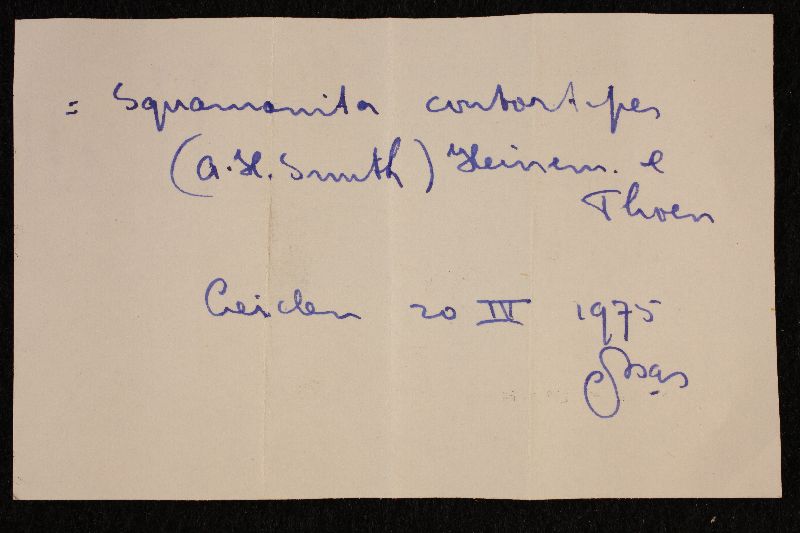 = Squamanita contortipes
(A.H. Smith) Heinem. e
Thoen
Leiden 20 III 1975
Bas